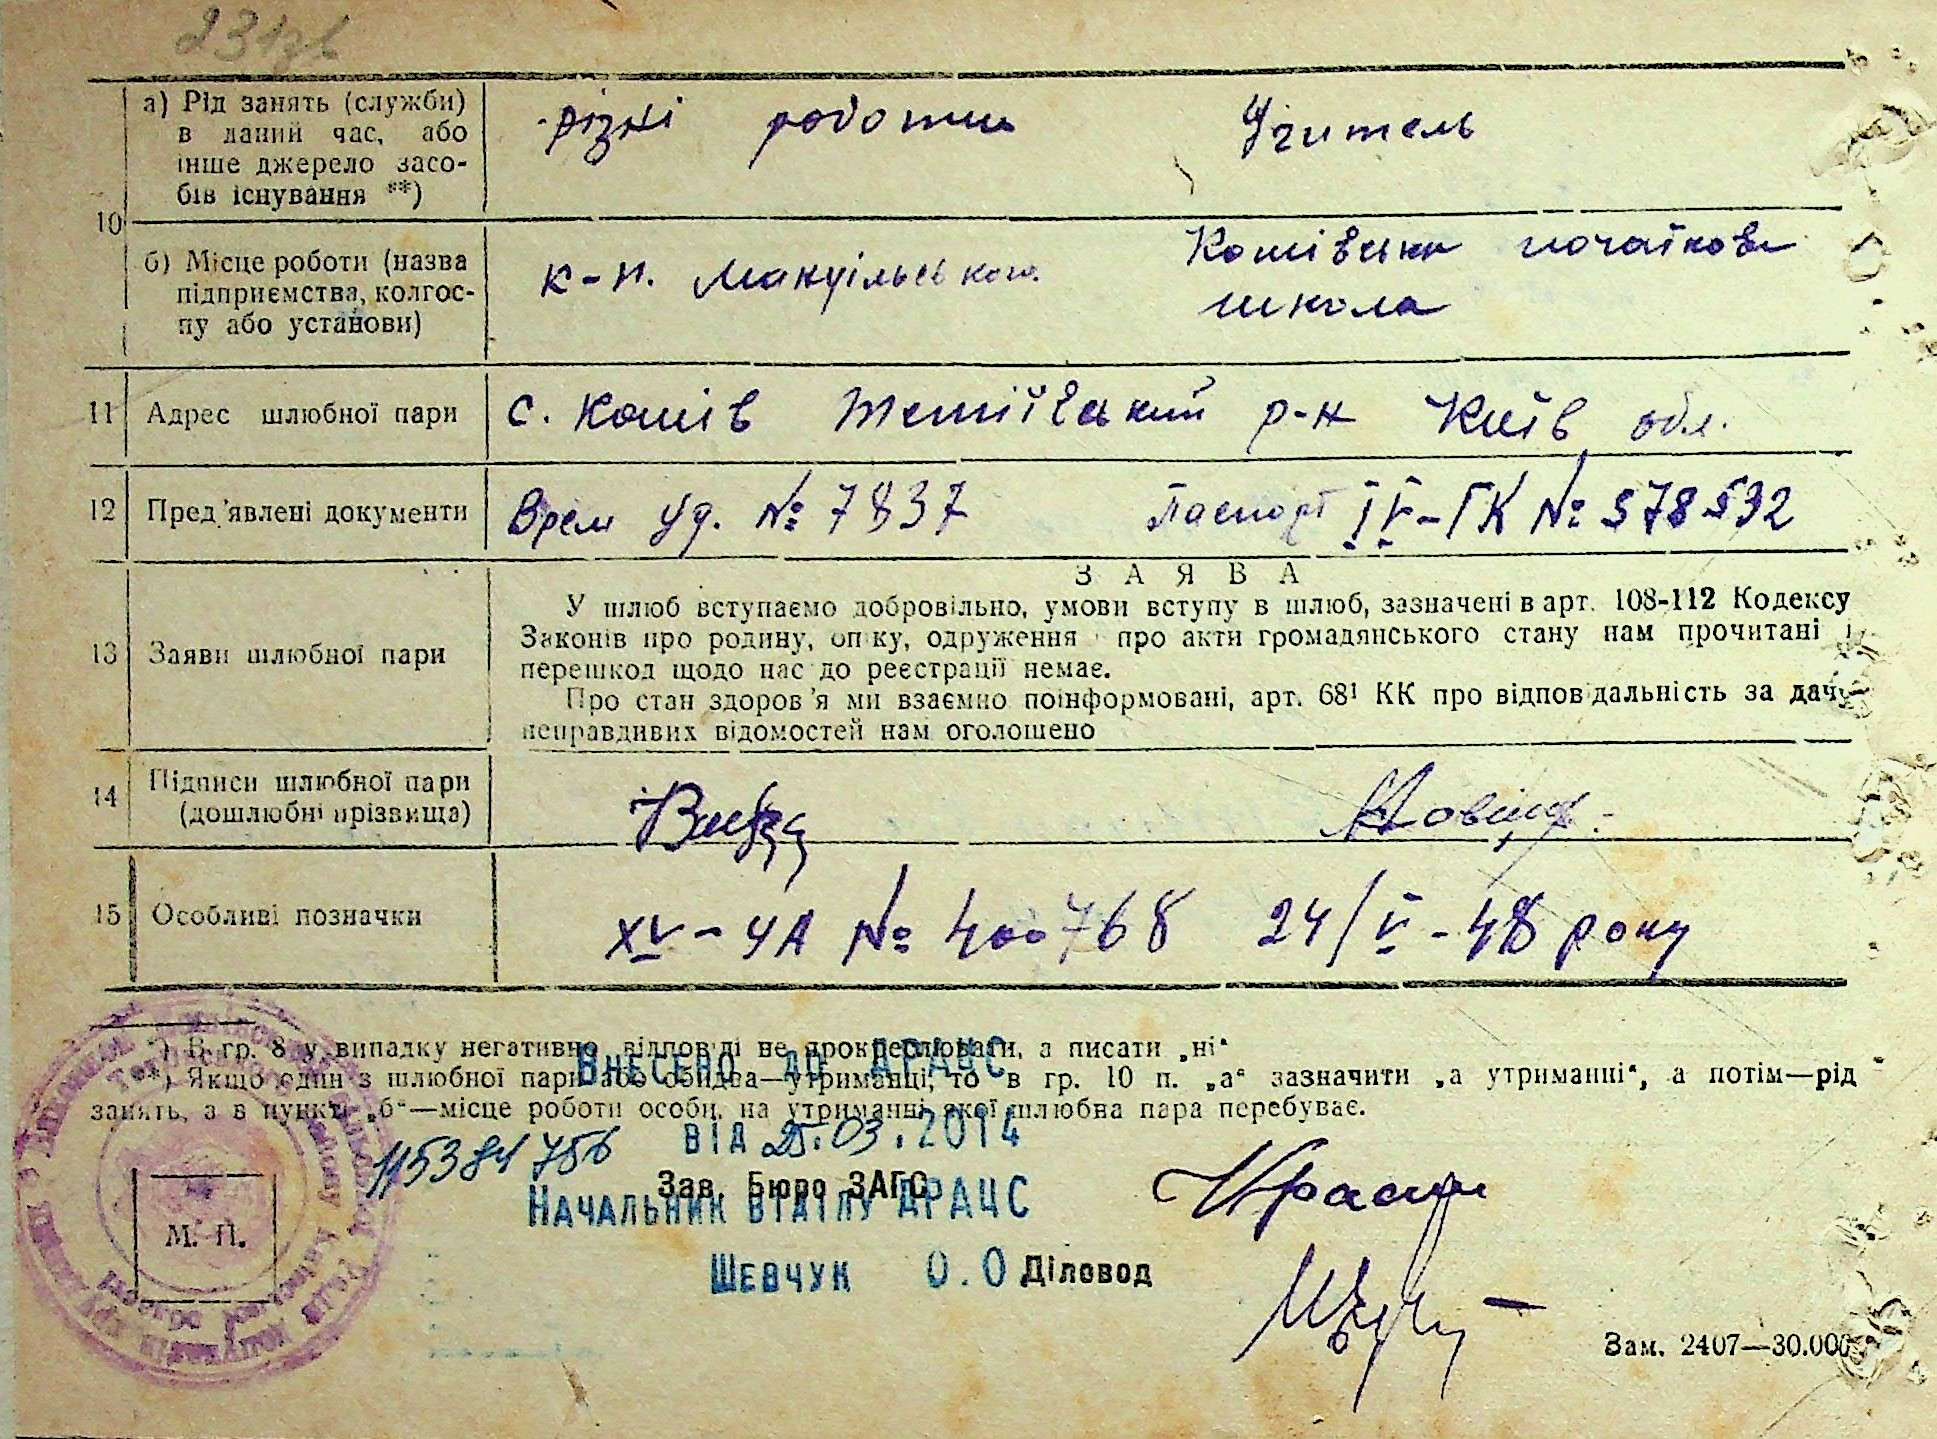 231зв
10
а) Рід занять (служби)
в даний час, або
інше джерело засо-
бів існування **)
різні роботи
Учитель
б) Місце роботи (назва
підприємства, колгос-
пу або установи)
к-п. Мануільськог.
Кошівська початкова
школа
11 Адрес шлюбної пари
с. Кошів Тетіївський р-н Київ обл.
12 Пред'явлені документи
Врем уд. № 7837
Паспорт IV-ГК № 578532
13 Заяви шлюбної пари
ЗАЯВА
У шлюб вступаємо добровільно, умови вступу в шлюб, зазначені в арт. 108-112 Кодексу
Законів про родину, опіку, одруження про акти громадянського стану нам прочитані і
перешкод щодо нас до реєстрації немає.
Про стан здоров'я ми взаємно поінформовані, арт. 68¹ КК про відповідальність за дачу
неправдивих відомостей нам оголошено
14 Підписи шлюбної пари
(дошлюбні прізвища)
15 Особливі позначки
XV-УА № 400768 24/V-48 року
*) В гр. 8 у випадку негативно відповіді не прокреслювати, а писати „ні“
**) Якщо один з шлюбної пари або обидва—утриманці, то в гр. 10 п. „а“ зазначити „а утриманні“, а потім—рід
занять, а в пункті „б“—місце роботи особи, на утриманні якої шлюбна пара перебуває.
Внесено до ДРАЦС
від 25.03.2014
115384756
Зав. Бюро ЗАГС
Начальник відділу ДРАЦС
М. П.
Шевчук О.О
Діловод
Зам. 2407—30.000